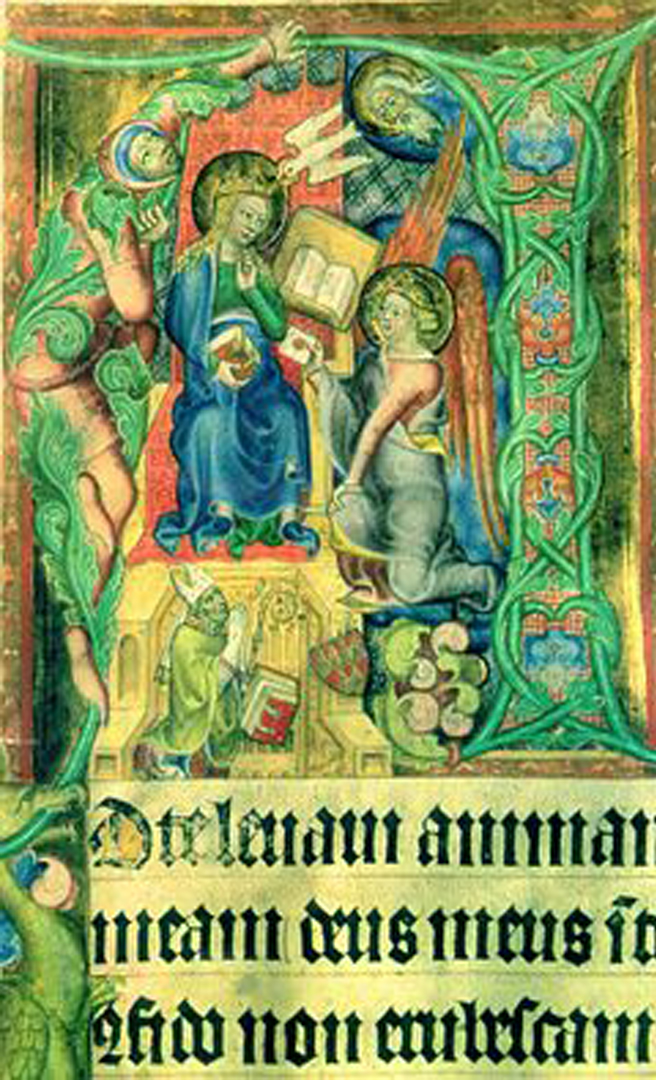 AD te leuaui animam
meam deus meus īt
ꝯfido non erubescam